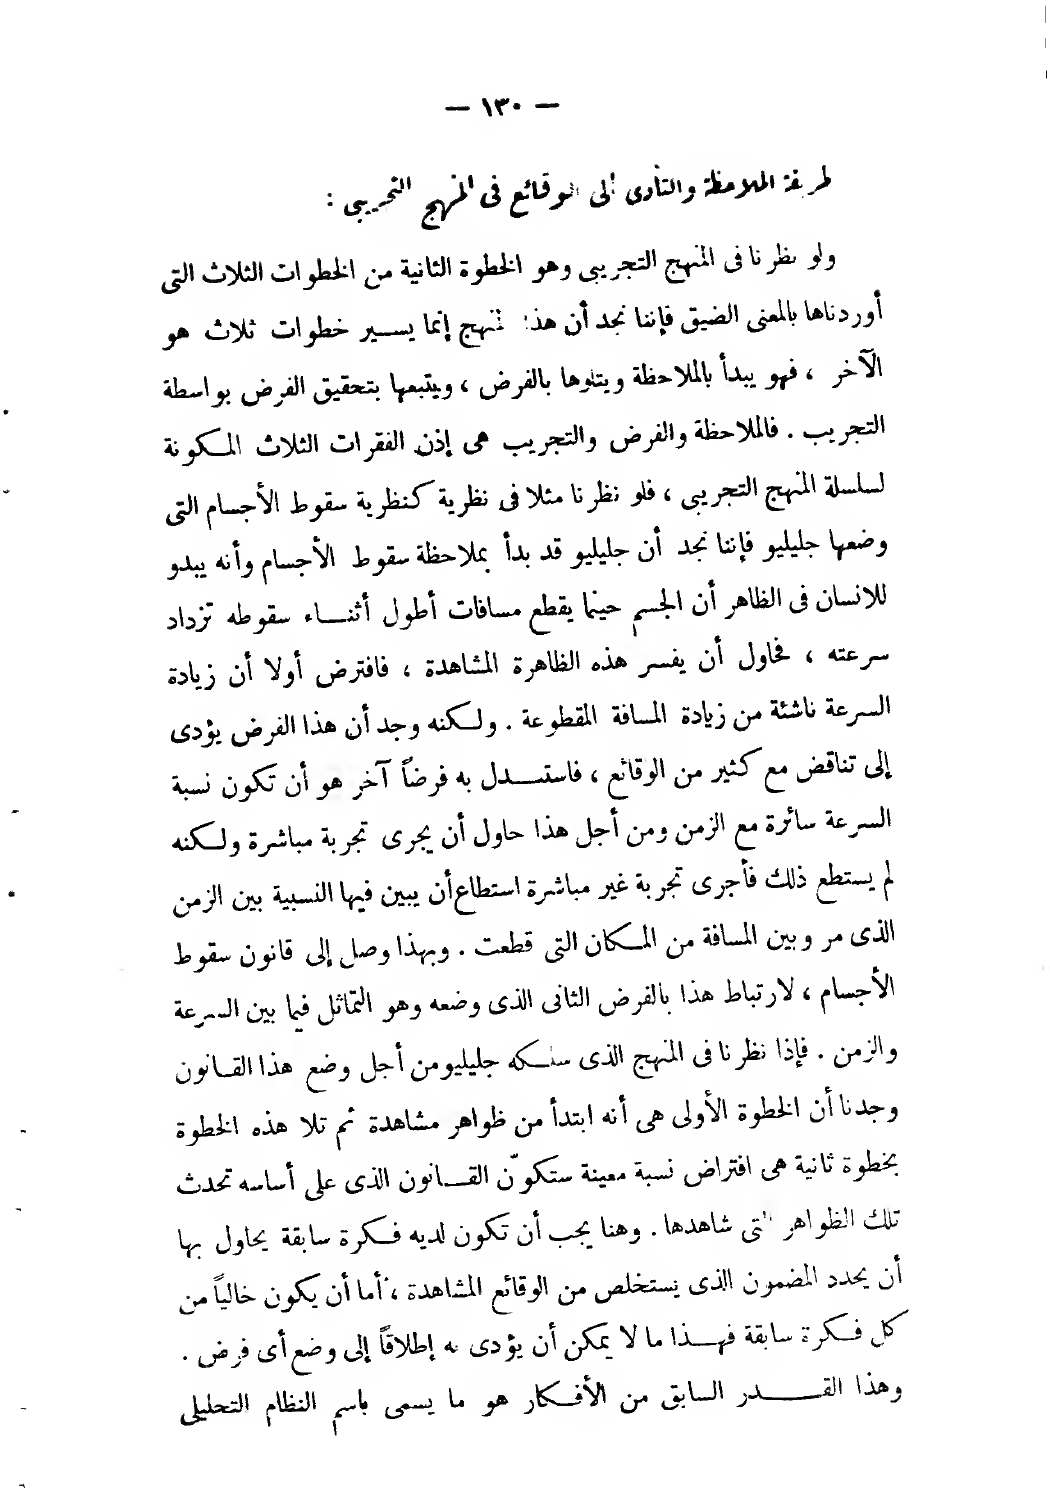 — ١٣٠ —
طريقة الملاحظة والتأدى إلى الوقائع فى المنهج التجريبى :
ولو نظرنا فى المنهج التجريبى وهو الخطوة الثانية من الخطوات الثلاث التى
أوردناها بالمعنى الضيق فإننا نجد أن هذا المنهج إنما يسير خطوات ثلاث هو
الآخر ، فهو يبدأ بالملاحظة ويتلوها بالفرض ، ويتبعها بتحقيق الفرض بواسطة
التجريب . فالملاحظة والفرض والتجريب هى إذن الفقرات الثلاث المكونة
لسلسلة المنهج التجريبى ، فلو نظرنا مثلا فى نظرية كنظرية سقوط الأجسام التى
وضعها جليليو فإننا نجد أن جليليو قد بدأ بملاحظة سقوط الأجسام وأنه يبدو
للانسان فى الظاهر أن الجسم حينما يقطع مسافات أطول أثناء سقوطه تزداد
سرعته ، فحاول أن يفسر هذه الظاهرة المشاهدة ، فافترض أولا أن زيادة
السرعة ناشئة من زيادة المسافة المقطوعة . ولكنه وجد أن هذا الفرض يؤدى
إلى تناقض مع كثير من الوقائع ، فاستبدل به فرضاً آخر هو أن تكون نسبة
السرعة سائرة مع الزمن ومن أجل هذا حاول أن يجرى تجربة مباشرة ولكنه
لم يستطع ذلك فأجرى تجربة غير مباشرة استطاع أن يبين فيها النسبية بين الزمن
الذى مر وبين المسافة من المكان التى قطعت . وبهذا وصل إلى قانون سقوط
الأجسام ، لارتباط هذا بالفرض الثانى الذى وضعه وهو التماثل فيما بين السرعة
والزمن . فإذا نظرنا فى المنهج الذى سلكه جليليو من أجل وضع هذا القانون
وجدنا أن الخطوة الأولى هى أنه ابتدأ من ظواهر مشاهدة ثم تلا هذه الخطوة
بخطوة ثانية هى افتراض نسبة معينة ستكوّن القانون الذى على أساسه تحدث
تلك الظواهر التى شاهدها . وهنا يجب أن تكون لديه فكرة سابقة يحاول بها
أن يحدد المضمون الذى يستخلص من الوقائع المشاهدة ، أما أن يكون خالياً من
كل فكرة سابقة فهذا ما لا يمكن أن يؤدى به إطلاقاً إلى وضع أى فرض .
وهذا القدر السابق من الأفكار هو ما يسمى باسم النظام التحليلى